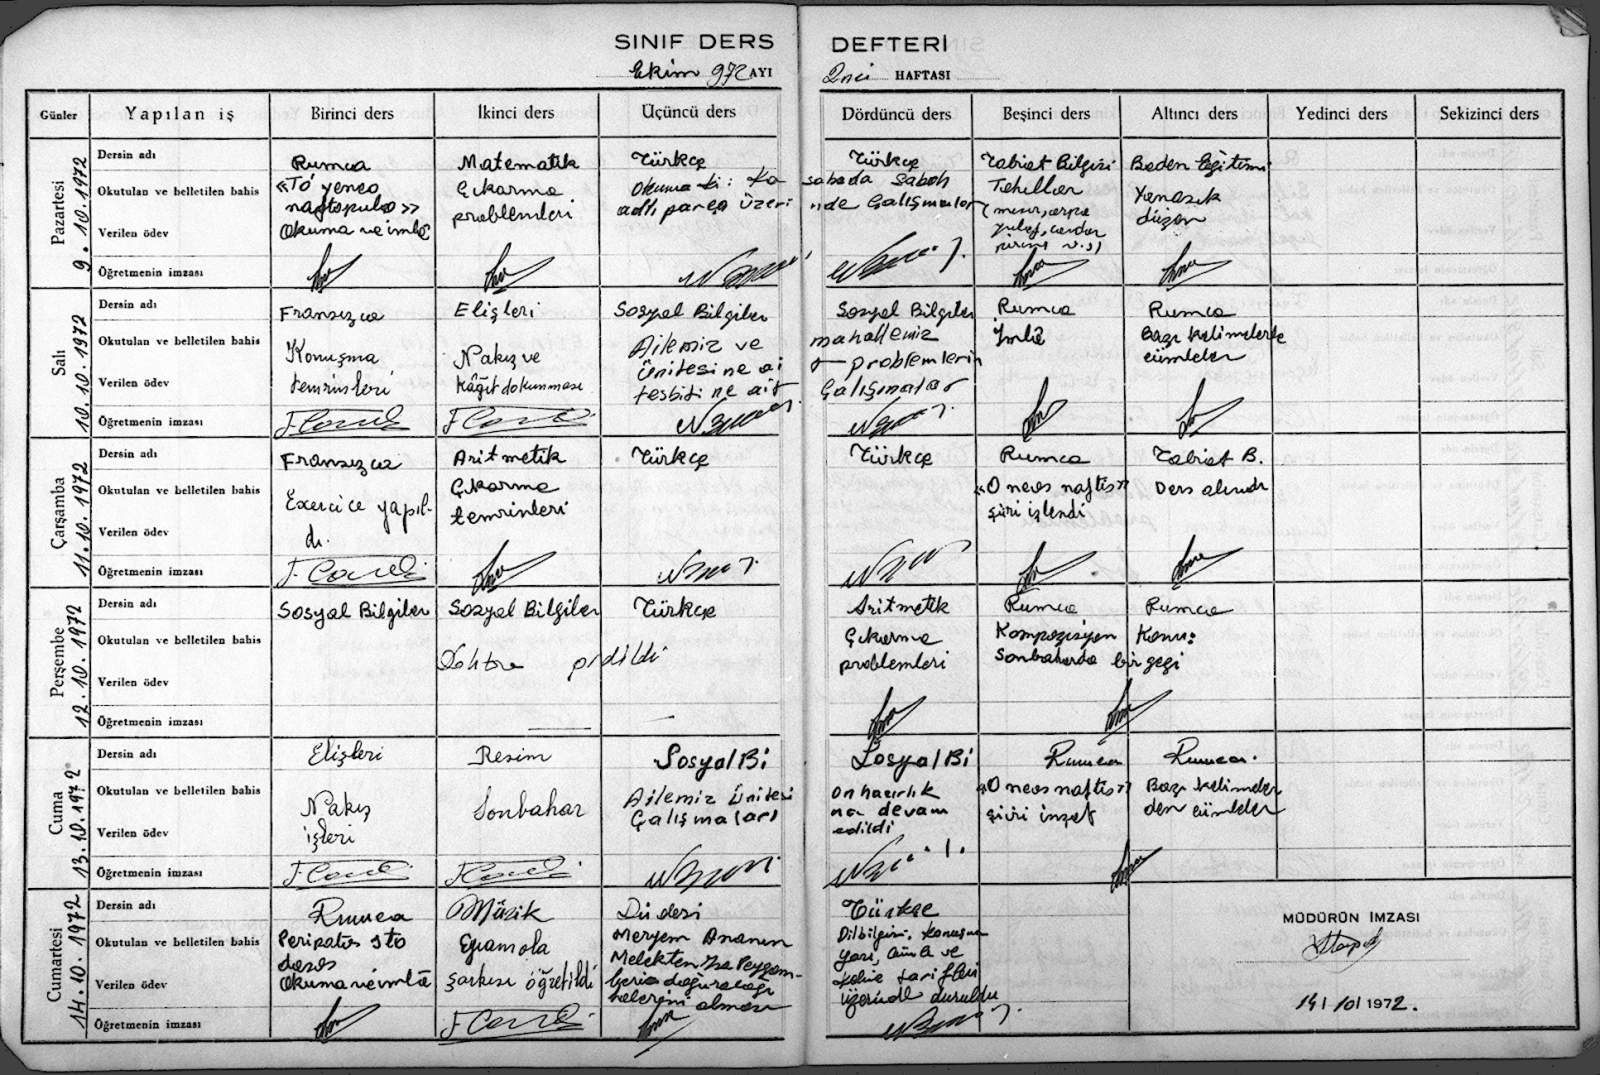 SINIF DERS DEFTERİ
Ekim 972 AYI 2nci HAFTASI
Günler Yapılan iş Birinci ders İkinci ders Üçüncü ders Dördüncü ders Beşinci ders Altıncı ders Yedinci ders Sekizinci ders
Pazartesi
9.10.1972
Dersin adı Rumca Matematik Türkçe Türkçe Tabiat Bilgisi Beden Eğitimi
Okutulan ve belletilen bahis
Verilen ödev
«To yeneo
naftopulo»
Okuma ve imlâ
Çıkarma
problemleri
Okuma ki: Ka
adlı parça üzeri
sabada Sabah
nde Çalışmalar
Tahıllar
(mısır, arpa
yulaf, çavdar
pirinç v.s)
Yanaşık
düzen
Öğretmenin imzası
Salı
10.10.1972
Dersin adı Fransızca Elişleri Sosyal Bilgiler Sosyal Bilgiler Rumca Rumca
Okutulan ve belletilen bahis
Verilen ödev
Konuşma
temrinleri
Nakış ve
kâğıt dokunması
Ailemiz ve
Ünitesine ai
tesbitine ait
mahallemiz
t problemlerin
Çalışmalar
İmlâ
Bazı kelimelerle
cümleler
Öğretmenin imzası
Çarşamba
11.10.1972
Dersin adı Fransızca Aritmetik Türkçe Türkçe Rumca Tabiat B.
Okutulan ve belletilen bahis
Verilen ödev
Exercice yapıl-
dı.
Çıkarma
temrinleri
«O neos naftis»
şiiri işlendi
Ders alındı
Öğretmenin imzası
Perşembe
12.10.1972
Dersin adı Sosyal Bilgiler Sosyal Bilgiler Türkçe Aritmetik Rumca Rumca
Okutulan ve belletilen bahis
Verilen ödev
Doktora gidildi
Çıkarma
problemleri
Kompozisyon Konu:
Sonbaharda bir gezi
Öğretmenin imzası
Cuma
13.10.1972
Dersin adı Elişleri Resim Sosyal Bi Sosyal Bi Rumca Rumca.
Okutulan ve belletilen bahis
Verilen ödev
Nakış
işleri
Sonbahar
Ailemiz Ünitesi
Çalışmaları
ön hazırlık
na devam
edildi
«O neos naftis»
şiiri inşat
Bazı kelimeler
den cümleler
Öğretmenin imzası
Cumartesi
14.10.1972
Dersin adı Rumca Müzik Din dersi Türkçe
Okutulan ve belletilen bahis
Verilen ödev
Peripatos sto
dasos
Okuma ve imlâ
şarkısı öğretildi
Meryem Ananın
Melekten İsa Peygam-
beri doğuracağı
haberini alması
Dilbilgisi, konuşma
yazı, cümle ve
kelime tarifleri
üzerinde duruldu
Öğretmenin imzası
MÜDÜRÜN İMZASI
14/10/1972.